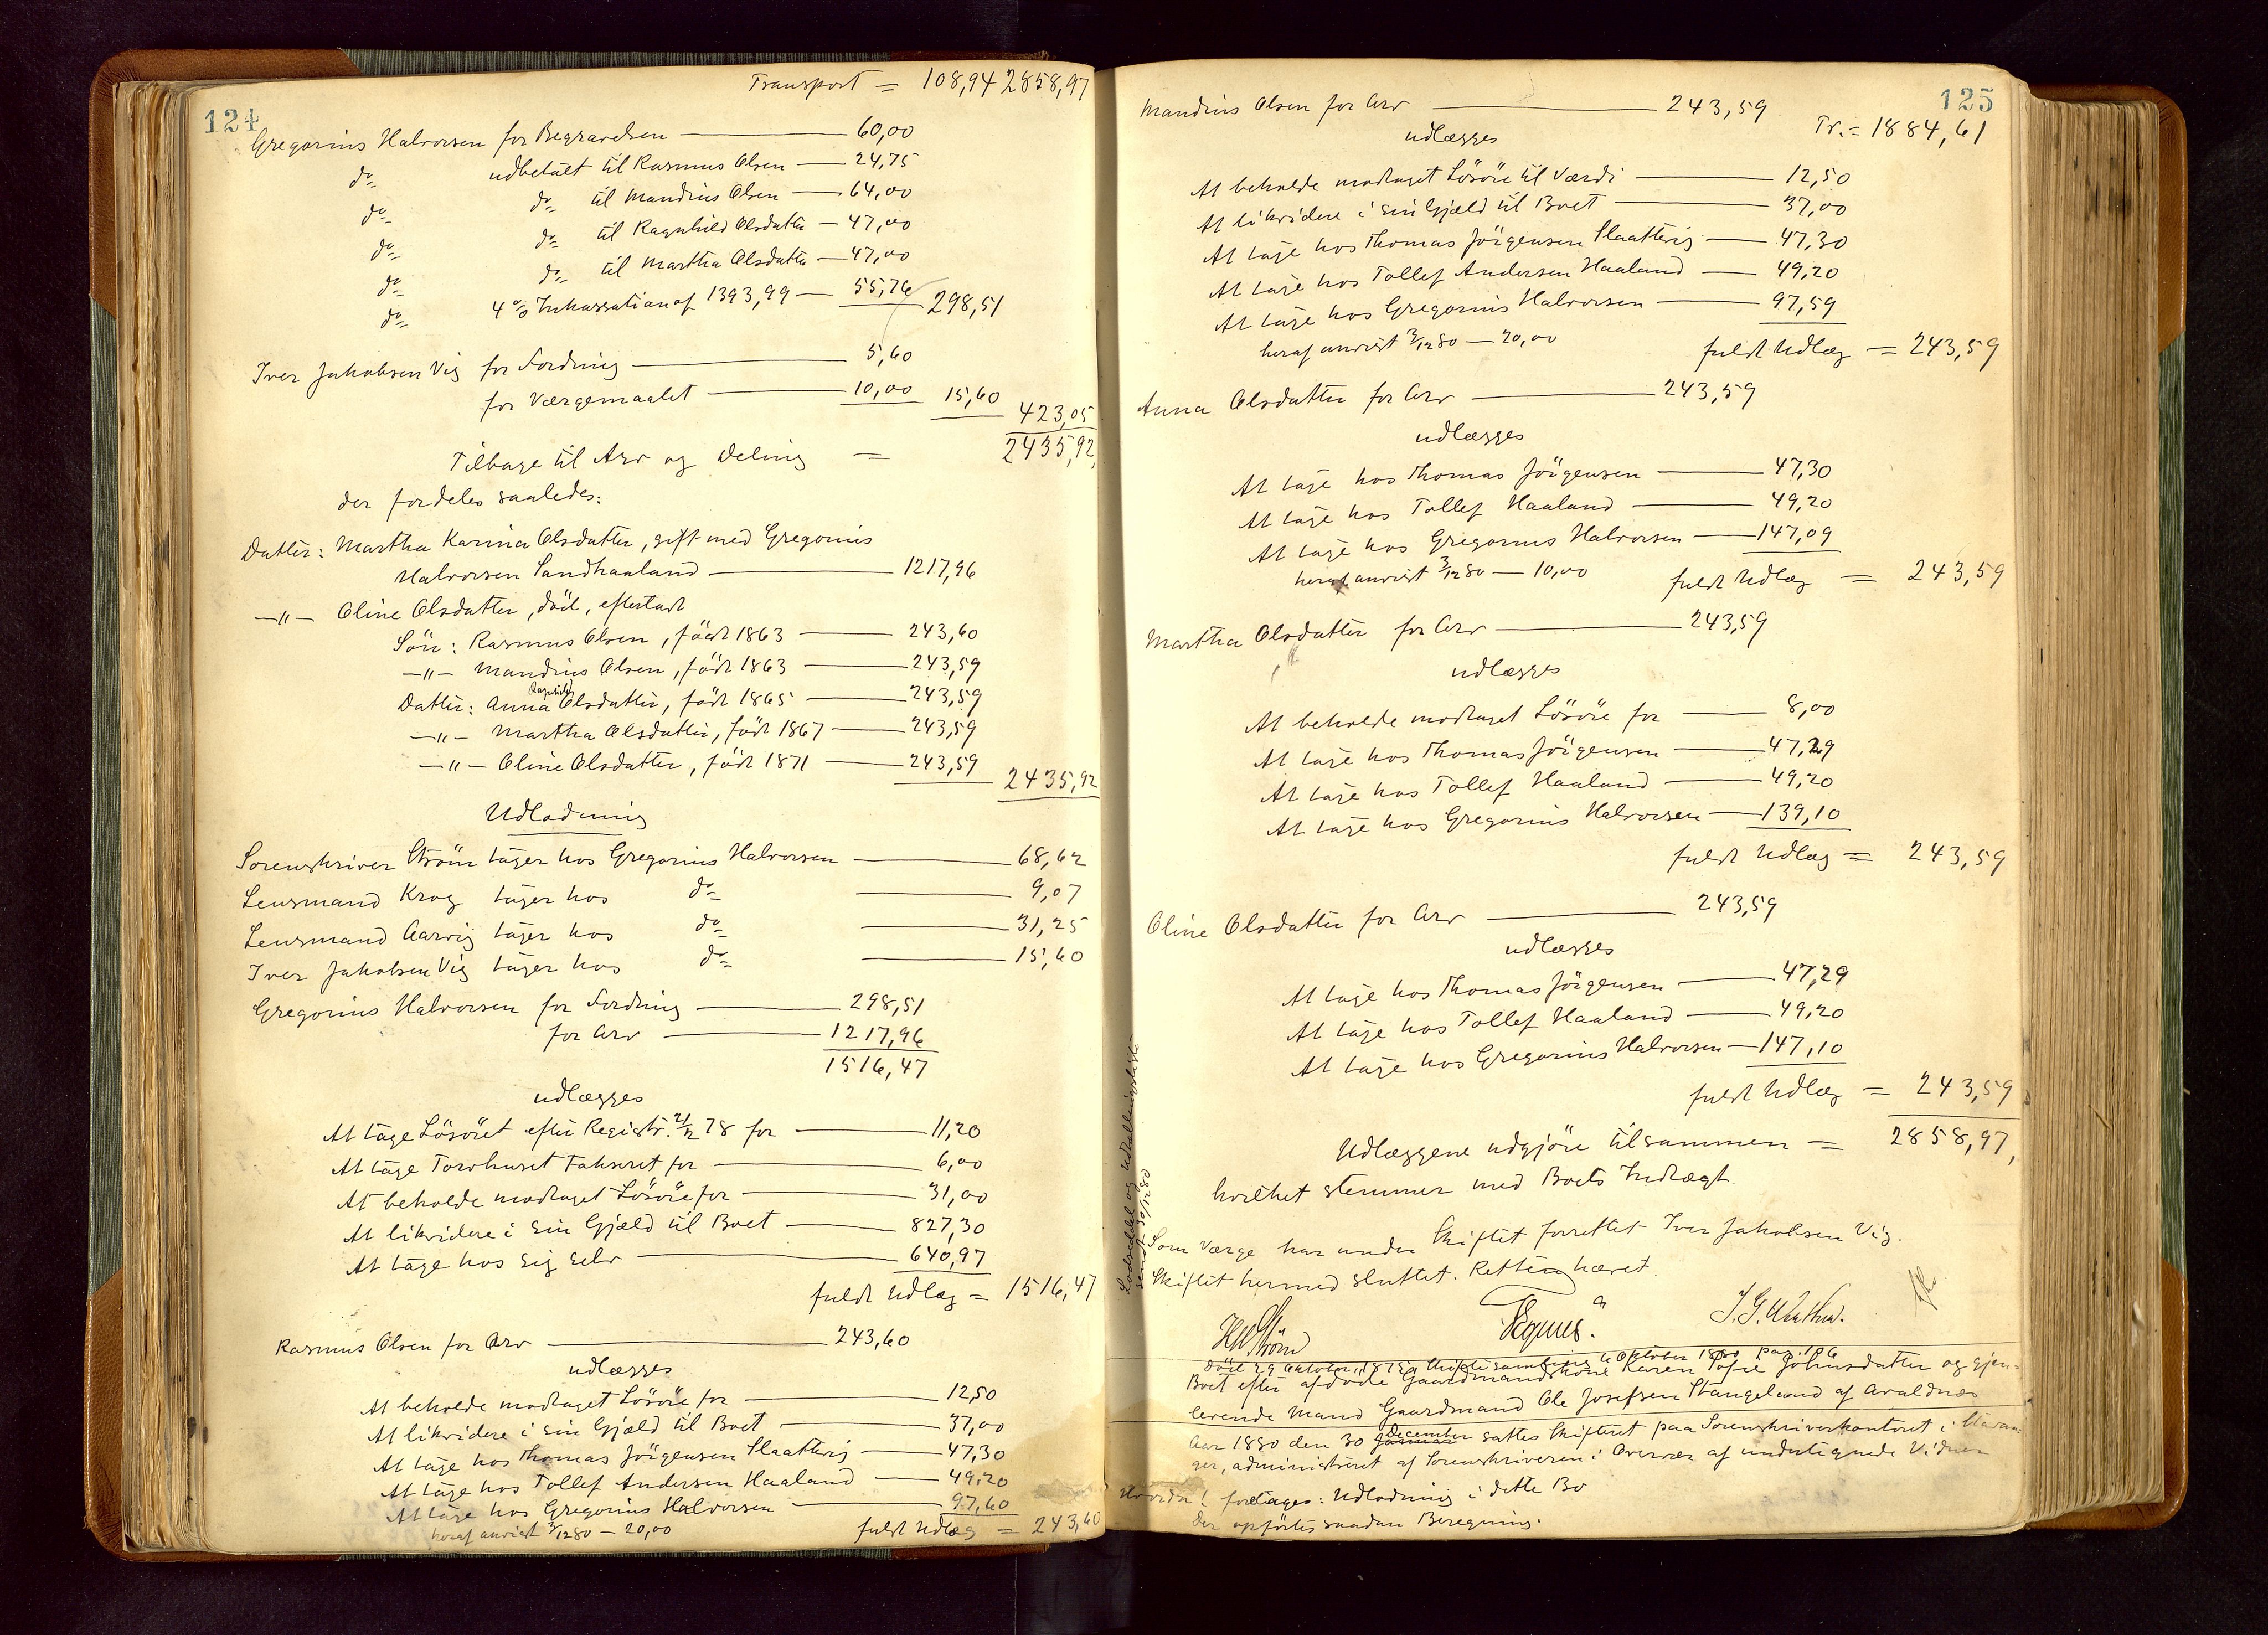 124
Transport = 108,94 2858,97
Gregorius Halvorsen for Begravelsen — 60,00
do= udbetalt til Rasmus Olsen — 24,75
do= do= til Mandius Olsen — 64,00
do= do= til Ragnhild Olsdatter — 47,00
do= do= til Martha Olsdatter — 47,00
do= 4 % Inkassation af 1393,99 — 55,76 298,51
Iver Jakobsen Vig for Fordring — 5,60
for Værgemaalet — 10,00 15,60
423,05
Tilbage til Arv og Deling = 2435,92,
der fordeles saaledes:
Datter: Martha Karina Olsdatter, gift med Gregorius
Halvorsen Sandhaaland — 1217,96
—"— Oline Olsdatter, död, efterladt
Sön: Rasmus Olsen, född 1863 — 243,60
—"— Mandius Olsen, född 1863 — 243,59
Datter: Anna Ragnhild Olsdatter, född 1865 — 243,59
—"— Martha Olsdatter, född 1867 — 243,59
—"— Oline Olsdatter, född 1871 — 243,59
2435,92
Udlodning
Sorenskriver Ström tager hos Gregorius Halvorsen — 68,62
Lensmand Krog tager hos do= — 9,07
Lensmand Aarvig tager hos do= — 31,25
Iver Jakobsen Vig tager hos do= — 15,60
Gregorius Halvorsen for Fordring — 298,51
for Arv — 1217,96
1516,47
udlægges
At tage Lösöret efter Registr. 21/2 78 for — 11,20
At tage Torvhuset Takseret for — 6,00
At beholde modtaget Lösöre for — 31,00
At likvidere i sin Gjæld til Boet — 827,30
At tage hos sig selv — 640,97
fuldt Udlæg = 1516,47
Rasmus Olsen for Arv — 243,60
udlægges
At beholde modtaget Lösöre for — 12,50
At likvidere i sin Gjæld til Boet — 37,00
At tage hos Thomas Jörgensen Slaattevig — 47,30
At tage hos Tollef Andersen Haaland — 49,20
At tage hos Gregorius Halvorsen — 97,60
heraf anvist 3/12 80 — 20,00 fuldt Udlæg = 243,60
125
Mandius Olsen for Arv — 243,59
Tr. = 1884,61
udlægges
At beholde modtaget Lösöre til Værdi — 12,50
At likvidere i sin Gjæld til Boet — 37,00
At tage hos Thomas Jörgensen Slaattevig — 47,30
At tage hos Tollef Andersen Haaland — 49,20
At tage hos Gregorius Halvorsen — 97,59
heraf anvist 3/12 80 — 20,00 fuldt Udlæg = 243,59
Anna Olsdatter for Arv — 243,59
udlægges
At tage hos Thomas Jörgensen — 47,30
At tage hos Tollef Haaland — 49,20
At tage hos Gregorius Halvorsen — 147,09
heraf anvist 3/12 80 — 10,00 fuldt Udlæg = 243,59
Martha Olsdatter for Arv — 243,59
udlægges
At beholde modtaget Lösöre for — 8,00
At tage hos Thomas Jörgensen — 47,29
At tage hos Tollef Haaland — 49,20
At tage hos Gregorius Halvorsen — 139,10
fuldt Udlæg = 243,59
Oline Olsdatter for Arv — 243,59
udlægges
At tage hos Thomas Jörgensen — 47,29
At tage hos Tollef Haaland — 49,20
At tage hos Gregorius Halvorsen — 147,10
fuldt Udlæg = 243,59
Udlæggene udgjöre tilsammen = 2858,97,
hvilket stemmer med Boets Indtægt.
Som Værge har under Skiftet forrettet Iver Jakobsen Vig.
Skiftet hermed sluttet. Retten hævet.
Lodseddel og Udtællingsliste
sendt 30/12 80
HM Ström
död 29 Oktober 1879, Skiftesamling 6 Oktober 1880 pag. 106
Boet efter afdöde Gaardmandskone Karen Tofie Johnsdatter og gjen-
levende Mand Gaardmand Ole Josefsen Stangeland af Avaldsnæs
Aar 1880 den 30 Januar December sattes Skifteret paa Sorenskriverkontoret i Stavan-
ger, administreret af Sorenskriveren i Overvær af undertegnede Vidner
Hvorda! foretages: Udlodning i dette Bo
Der opförtes saadan Beregning.